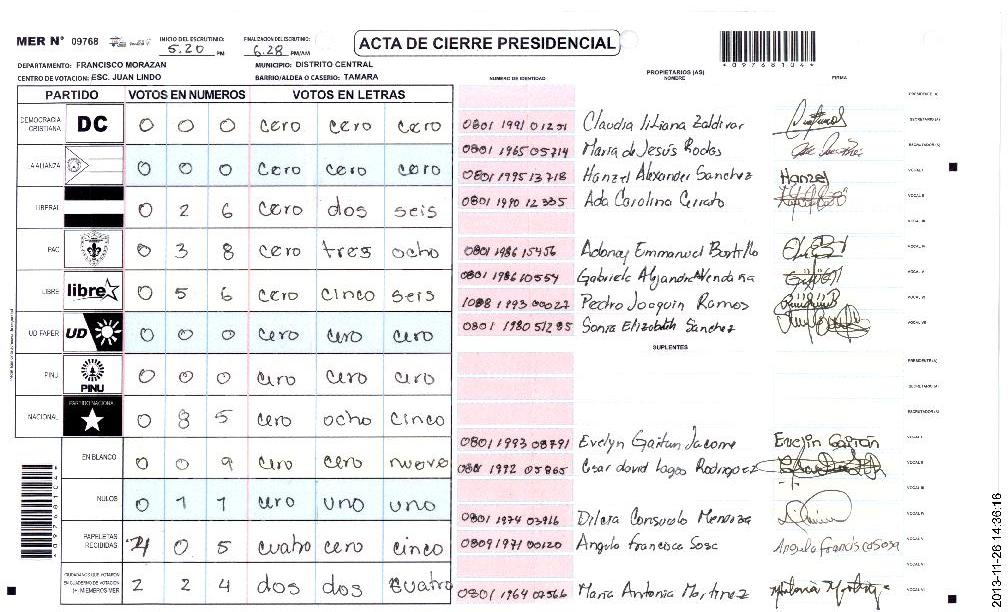 MER N° 09768
INICIO DEL ESCRUTINIO: 5.20 PM
FINALIZACION DEL ESCRUTINIO: 6.28 PM/AM
ACTA DE CIERRE PRESIDENCIAL
*09768104*
DEPARTAMENTO: FRANCISCO MORAZAN
MUNICIPIO: DISTRITO CENTRAL
CENTRO DE VOTACION: ESC. JUAN LINDO
BARRIO/ALDEA O CASERIO: TAMARA
PARTIDO VOTOS EN NUMEROS VOTOS EN LETRAS
DEMOCRACIA CRISTIANA DC 0 0 0 cero cero cero
LA ALIANZA 0 0 0 cero cero cero
LIBERAL 0 2 6 cero dos seis
PAC 0 3 8 cero tres ocho
LIBRE libre 0 5 6 cero cinco seis
UD FAPER UD 0 0 0 cero cero cero
PINU PINU 0 0 0 cero cero cero
NACIONAL PARTIDO NACIONAL 0 8 5 cero ocho cinco
EN BLANCO 0 0 9 cero cero nueve
NULOS 0 1 1 cero uno uno
PAPELETAS RECIBIDAS 4 0 5 cuatro cero cinco
CIUDADANOS QUE VOTARON EN CUADERNO DE VOTACION (+ MIEMBROS MER 2 2 4 dos dos cuatro
*09768104*
NUMERO DE IDENTIDAD PROPIETARIOS (AS) NOMBRE FIRMA
PRESIDENTE (A)
0801 1991 01231 Claudia liliana Zaldivar SECRETARIO (A)
0801 1965 05714 Maria de Jesús Rodas ESCRUTADOR (A)
0801 1995 13718 Hanzel Alexander Sanchez Hanzel VOCAL I
0801 1990 12335 Ada Carolina Cerrato VOCAL II
VOCAL III
0801 1986 15456 Adonay Emmanuel VOCAL IV
0801 1986 10554 Gabriela Alejandra VOCAL V
1088 1993 00027 Pedro Joaquin Ramos VOCAL VI
0801 1980 51285 Sonia Elizabeth Sanchez VOCAL VII
SUPLENTES
PRESIDENTE (A)
SECRETARIO (A)
ESCRUTADOR (A)
0801 1993 08791 Evelyn Gaitan Jacome Evelin Gaitán VOCAL I
0801 1992 05865 Cesar david Lagos Rodriguez VOCAL II
VOCAL III
0801 1974 03916 Dilcia Consuelo Mendoza VOCAL IV
0809 1971 00120 Angela Francisca Sosa Angela Francisca Sosa VOCAL V
VOCAL VI
0801 1964 07566 Maria Antonia Martinez VOCAL VII
2013-11-26 14:36:16